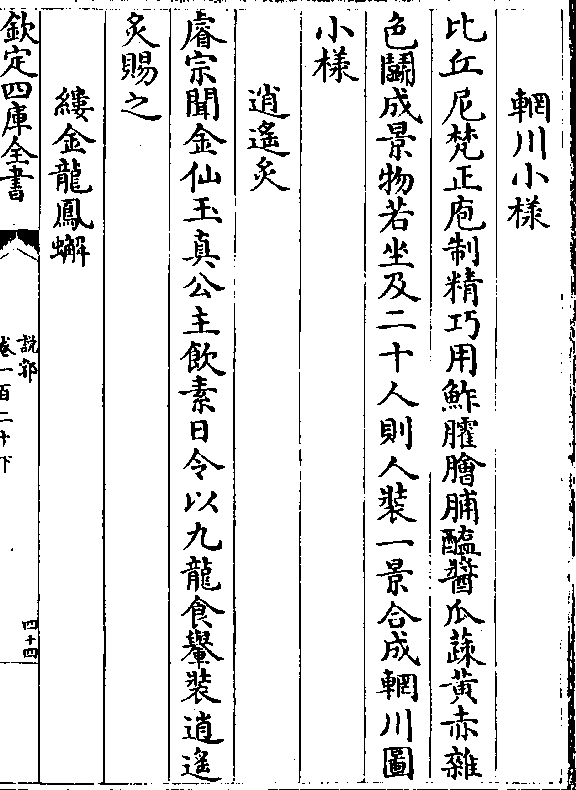 輞川小樣
比丘尼梵正庖制精巧用鮓臛膾脯醢醬瓜蔬黄赤雜
色鬭成景物若坐及二十人則人裝一景合成輞川圖
小樣
逍遙炙
睿宗聞金仙玉真公主飲素日令以九龍食轝裝逍遙
炙賜之
縷金龍鳳蠏
欽定四庫全書
說郛
卷一百二十下
四十四